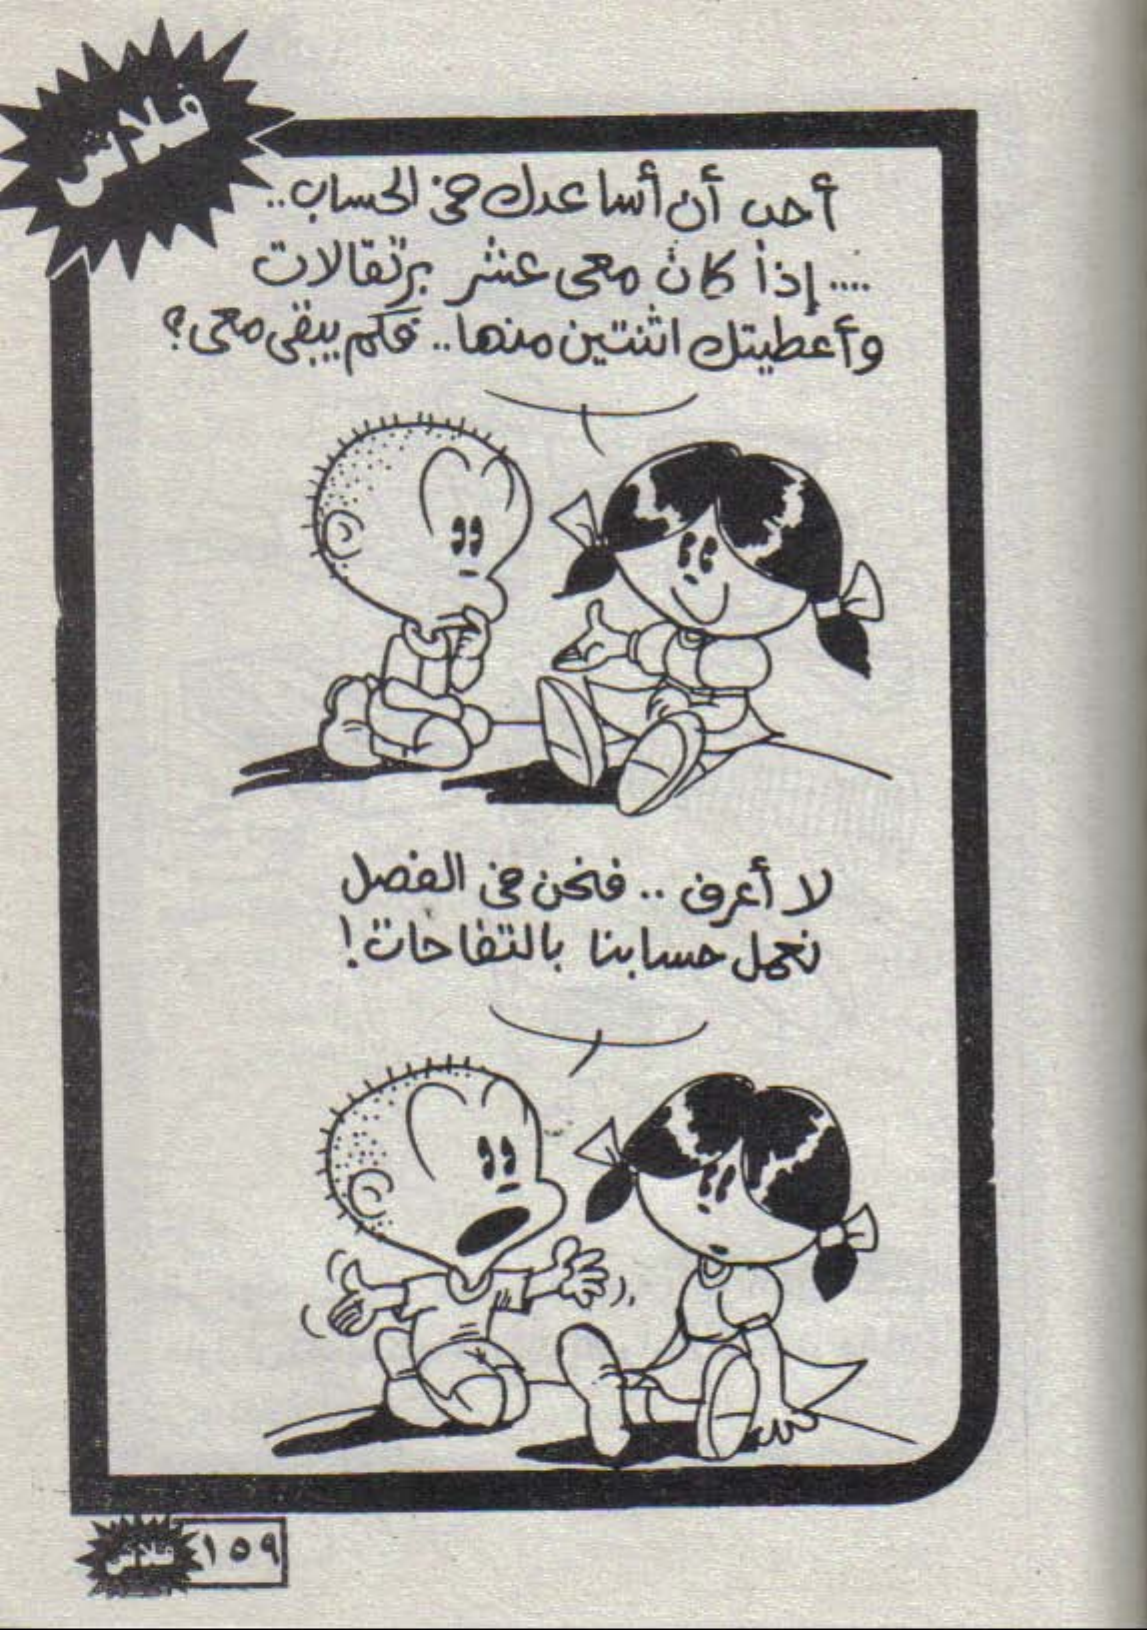 فلاش
أحب أن أساعدك فى الحساب..
.... إذا كان معى عشر برتقالات
وأعطيتك اثنتين منها.. فكم يبقى معى؟
لا أعرف .. فنحن فى الفصل
نعمل حسابنا بالتفاحات!
فلاش ١٥٩